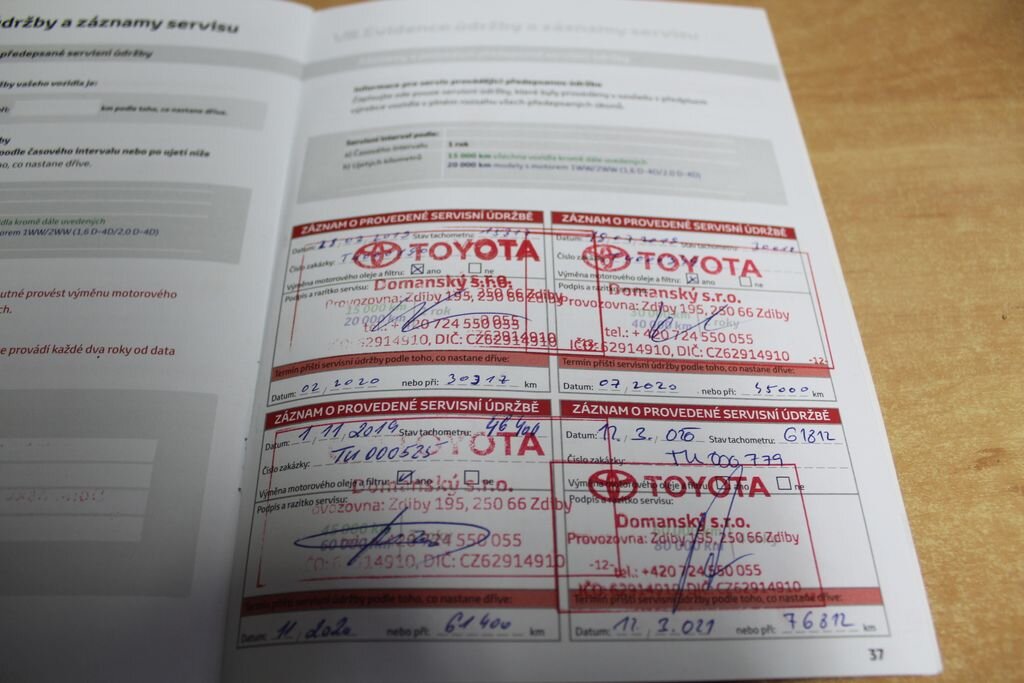 údržby a záznamy servisu
předepsané servisní údržby
žby vašeho vozidla je:
km podle toho, co nastane dříve.
podle časového intervalu nebo po ujetí níže
ho, co nastane dříve.
idla kromě dále uvedených
torem 1WW/2WW (1,6 D-4D/2,0 D-4D)
utné provést výměnu motorového
ch.
se provádí každé dva roky od data
VIII. Evidence údržby a záznamy servisu
Informace pro servis provádějící předepsanou údržbu
Servisní interval podle:
a) Časového intervalu 1 rok
b) Ujetých kilometrů 15 000 km všechna vozidla kromě dále uvedených
20 000 km modely s motorem 1WW/2WW (1,6 D-4D/2,0 D-4D)
ZÁZNAM O PROVEDENÉ SERVISNÍ ÚDRŽBĚ
Datum: Stav tachometru:
Číslo zakázky:
TOYOTA
Výměna motorového oleje a filtru: ano ne
Podpis a razítko servisu:
Domanský s.r.o.
Provozovna: Zdiby 195, 250 66 Zdiby
15 000 km rok
20 000 km
tel.: +420 724 550 055
62914910, DIČ: CZ62914910
Termín příští servisní údržby podle toho, co nastane dříve:
Datum: 02 / 2020 nebo při: 30317 km
ZÁZNAM O PROVEDENÉ SERVISNÍ ÚDRŽBĚ
Datum: Stav tachometru:
Číslo zakázky:
TOYOTA
Výměna motorového oleje a filtru: ano ne
Podpis a razítko servisu:
Domanský s.r.o.
Provozovna: Zdiby 195, 250 66 Zdiby
30 000 km roky
40 000 km
tel.: +420 724 550 055
IČO: 62914910, DIČ: CZ62914910
-12-
Termín příští servisní údržby podle toho, co nastane dříve:
Datum: 07 / 2020 nebo při: 45000 km
ZÁZNAM O PROVEDENÉ SERVISNÍ ÚDRŽBĚ
Datum: 1 / 11 / 2019 Stav tachometru: 46400
Číslo zakázky: TU000525
TOYOTA
Výměna motorového oleje a filtru: ano ne
Podpis a razítko servisu:
Domanský s.r.o.
Provozovna: Zdiby 195, 250 66 Zdiby
45 000 km
60 000 km
724 550 055
62914910, DIČ: CZ62914910
Termín příští servisní údržby podle toho, co nastane dříve:
Datum: 11 / 2020 nebo při: 61400 km
ZÁZNAM O PROVEDENÉ SERVISNÍ ÚDRŽBĚ
Datum: 12. 3. 020 Stav tachometru: 61812
Číslo zakázky: TU 000 779
Výměna motorového oleje a filtru: ano ne
TOYOTA
Podpis a razítko servisu:
Domanský s.r.o.
Provozovna: Zdiby 195, 250 66 Zdiby
80 000 km
-12-
tel.: +420 724 550 055
IČO: 62914910, DIČ: CZ62914910
Termín příští servisní údržby podle toho, co nastane dříve:
Datum: 12 / 3. 021 nebo při: 76812 km
37